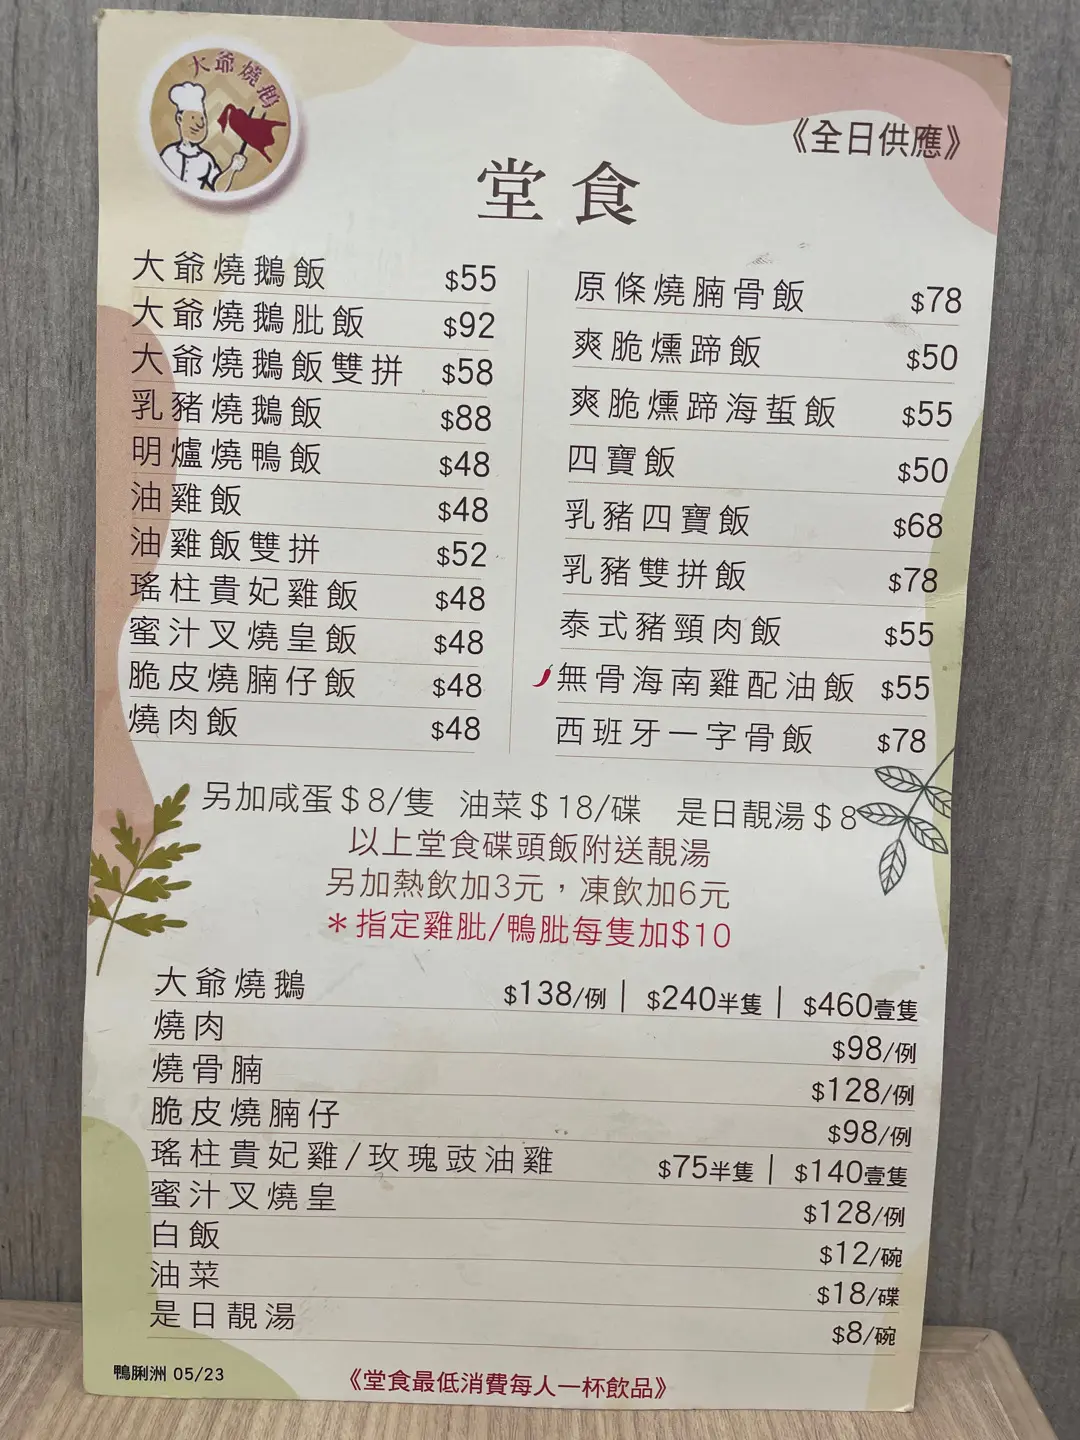 大爺燒鵝
《全日供應》
堂食
大爺燒鵝飯 $55
大爺燒鵝肶飯 $92
大爺燒鵝飯雙拼 $58
乳豬燒鵝飯 $88
明爐燒鴨飯 $48
油雞飯 $48
油雞飯雙拼 $52
瑤柱貴妃雞飯 $48
蜜汁叉燒皇飯 $48
脆皮燒腩仔飯 $48
燒肉飯 $48
原條燒腩骨飯 $78
爽脆燻蹄飯 $50
爽脆燻蹄海蜇飯 $55
四寶飯 $50
乳豬四寶飯 $68
乳豬雙拼飯 $78
泰式豬頸肉飯 $55
無骨海南雞配油飯 $55
西班牙一字骨飯 $78
另加咸蛋$8/隻 油菜$18/碟 是日靚湯$8
以上堂食碟頭飯附送靚湯
另加熱飲加3元，凍飲加6元
*指定雞肶/鴨肶每隻加$10
大爺燒鵝 $138/例 | $240半隻 | $460壹隻
燒肉 $98/例
燒骨腩 $128/例
脆皮燒腩仔 $98/例
瑤柱貴妃雞/玫瑰豉油雞 $75半隻 | $140壹隻
蜜汁叉燒皇 $128/例
白飯 $12/碗
油菜 $18/碟
是日靚湯 $8/碗
鴨脷洲 05/23
《堂食最低消費每人一杯飲品》